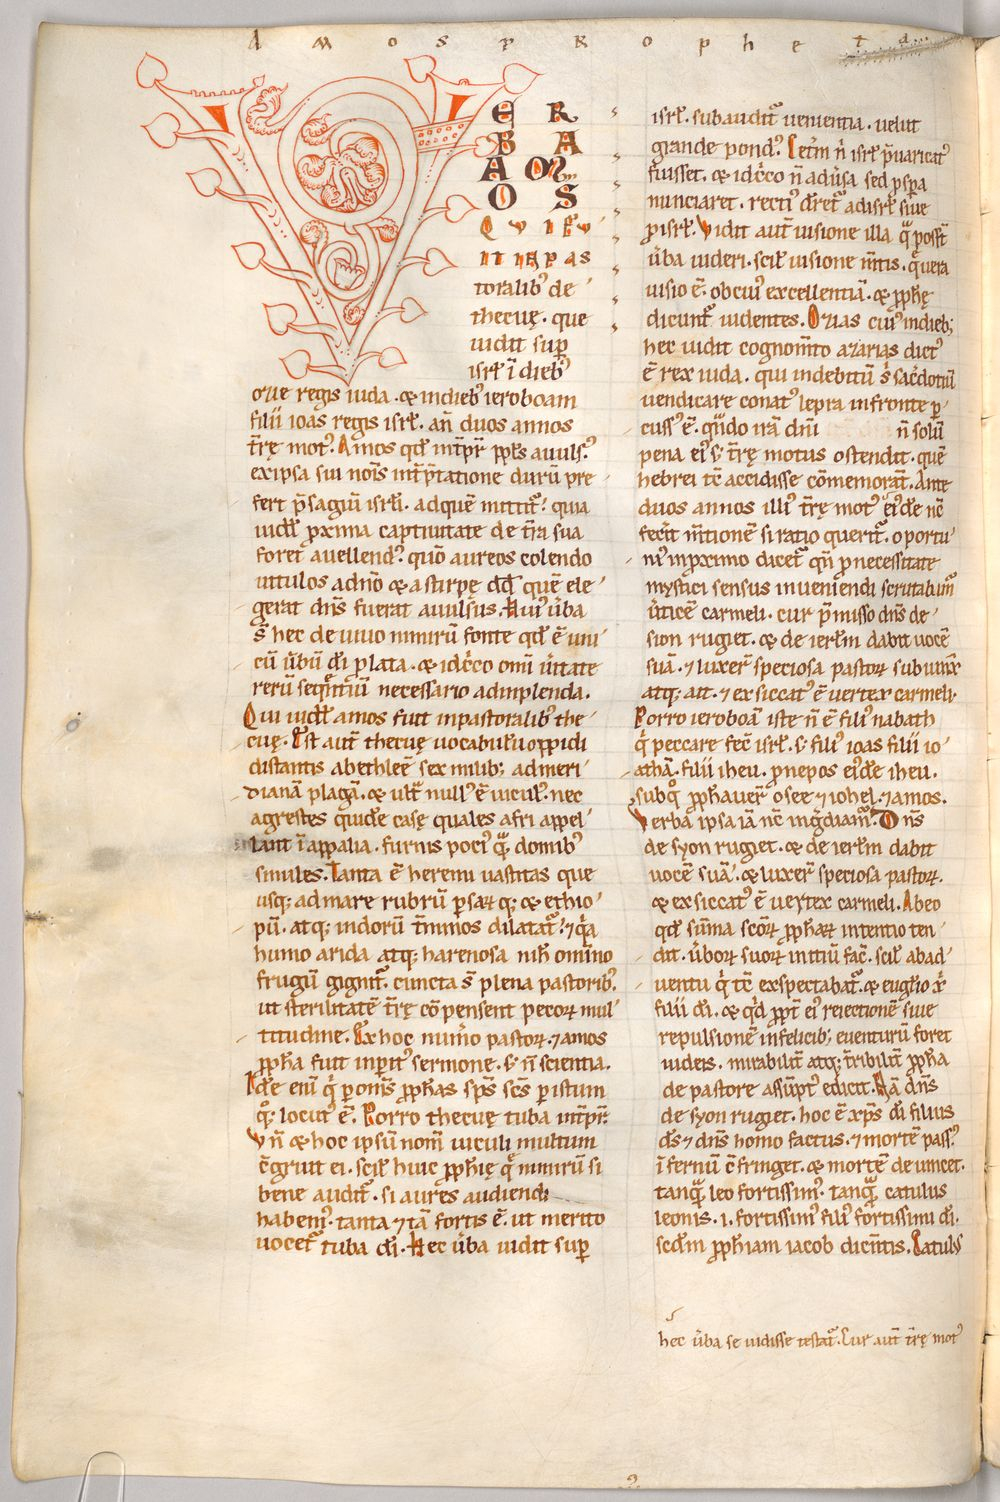 AMOS PROPHETA
V
E R
B A
A M
O S
QVI FU
IT IN PAS
toralib' de
thecuę. que
uidit sup̄
isrł ī dieb'
oȥię regis iuda. & indieb' ieroboam
filii ioas regis isrł. an̄ duos annos
t̄rę mot'. Amos qd̄ int̄pr̄ ppl's auuls'.
ex ipsa sui nois int̄p̄tatione durū pre
fert p̄sagiū isrłi. ad quē mittit̄: quia
uidł pxima captiuitate de t̄ra sua
foret auellend'. quō aureos colendo
uitulos adnō & a stirpe dd̄ quē ele
gerat dn̄s fuerat auulsus. Hui' ūba
s̄ hec de uiuo nimirū fonte qd̄ ē uni
cū ūbū dī plata. & idcco omī ūitate
rerū seqntiū necessario adimplenda.
Qui uidł amos fuit inpastoralib' the
cuę. Est aut̄ thecuę uocabulū oppidi
distantis abethleē sex milib; admeri
dianā plagā. & ult̄ null' ē uicul'. nec
agrestes quidē casę quales afri appel
lant ī appalia. furnis poci' q̄ domib'
similes. Tanta ē heremi uastitas que
usq; ad mare rubrū psarꝝ q; & ethio
pū. atq; indorū t̄minos dilatat̄: 7 q̄a
humo arida atq; harenosa nih̄ omīno
frugū gignit̄. cuncta s̄ plena pastorib'.
ut sterilitatē t̄rę cōpensent pecorꝝ mul
titudine. Ex hoc num̄o pastorꝝ. 7 amos
ppha fuit inpit' sermone. s; n̄ scientia.
Idē enī q̇ p om̄s pphas sp̄s sc̄s p istum
q°; locut' ē. Porro thecuę tuba int̄pr̄.
Vn̄ & hoc ipsū nom̄ uiculi multum
c̄gruit ei. scil' huic pphię q̄ nimirū si
bene audit̄. si aures audiendi
habem'. tanta 7 tā fortis ē. ut merito
uocet̄ tuba dī. Hec ūba uidit sup̄
isrł. subaudit̄ uenientia. uelut
grande pond'. Cet̄m n̄ isrł p̄uaricat'
fuisset. & idcco n̄ adūsa sed pspa
nunciaret. recti' dr̄et̄ ad isrł siue
p isrł. Vidit aut̄ uisione illa q̄ posst̄
ūba uideri. scil' uisione m̄tis. q̄ uera
uisio ē. ob cui' excellentiā. & pphę
dicunt̄ uidentes. Oȥias cui' indieb;
hec uidit cognom̄to aȥarias dict'
ē rex iuda. qui indebitū s̄ sacdotiū
uendicare conat' lepra infronte p
cuss' ē. q̄ndo irā dn̄i n̄ solū
pena ei' s; t̄rę motus ostendit. quē
hebrei tc̄ accidisse cōmemorat̄. Ante
duos annos illi' t̄rę mot' ei'dē nc̄
fecit m̄tionē si ratio querit̄. oportu
ni' inpximo dicet̄ qn̄ p necessitate
mystici sensus inueniendi scrutabim̄
ūticē carmeli. cur p̄misso dn̄s de
sion rugiet. & de ierłm dabit uocē
suā. 7 luxer̄ speciosa pastorꝝ subiunx̄
atq; ait. 7 exsiccat' ē uertex carmeli.
Porro ieroboā iste n̄ ē fili' nabath
q̇ peccare fec̄ isrł. s; fili' ioas filii io
athā. filii iheu. pnepos ei'dē iheu.
sub q̇ pphauer̄ osee 7 iohel. 7 amos.
Verba ipsa iā nc̄ ingdiam̄. Dn̄s
de syon rugiet. & de ierłm dabit
uocē suā. & luxer̄ speciosa pastorꝝ.
& exsiccat' ē uertex carmeli. Ab eo
qd̄ sūma sc̄orꝝ pphaꝝ intentio ten
dit. ūborꝝ suorꝝ initiū fac̄. scil' ab ad
uentu q̇ tc̄ exspectabat̄. & euglio xp̄i
filii dī. & qd̄ ppt̄ ei' reiectionē siue
repulsionē infelicib; euenturū foret
iudeis. mirabilit̄ atq; t̄ribilit̄ ppha
de pastore assūpt' edicit. Nā dn̄s
de syon rugiet. hoc ē xp̄s dī filius
ds̄ & dn̄s homo factus. 7 mortē pass'.
īfernū c̄fringet. & mortē deuincet.
tanq̄ leo fortissim'. tanq̄ catulus
leonis. i. fortissim' fili' fortissimi dī.
scd̄m pphiam iacob dicentis. Catulus
hec ūba se uidisse testat̄. Cur aut̄ t̄rę mot'